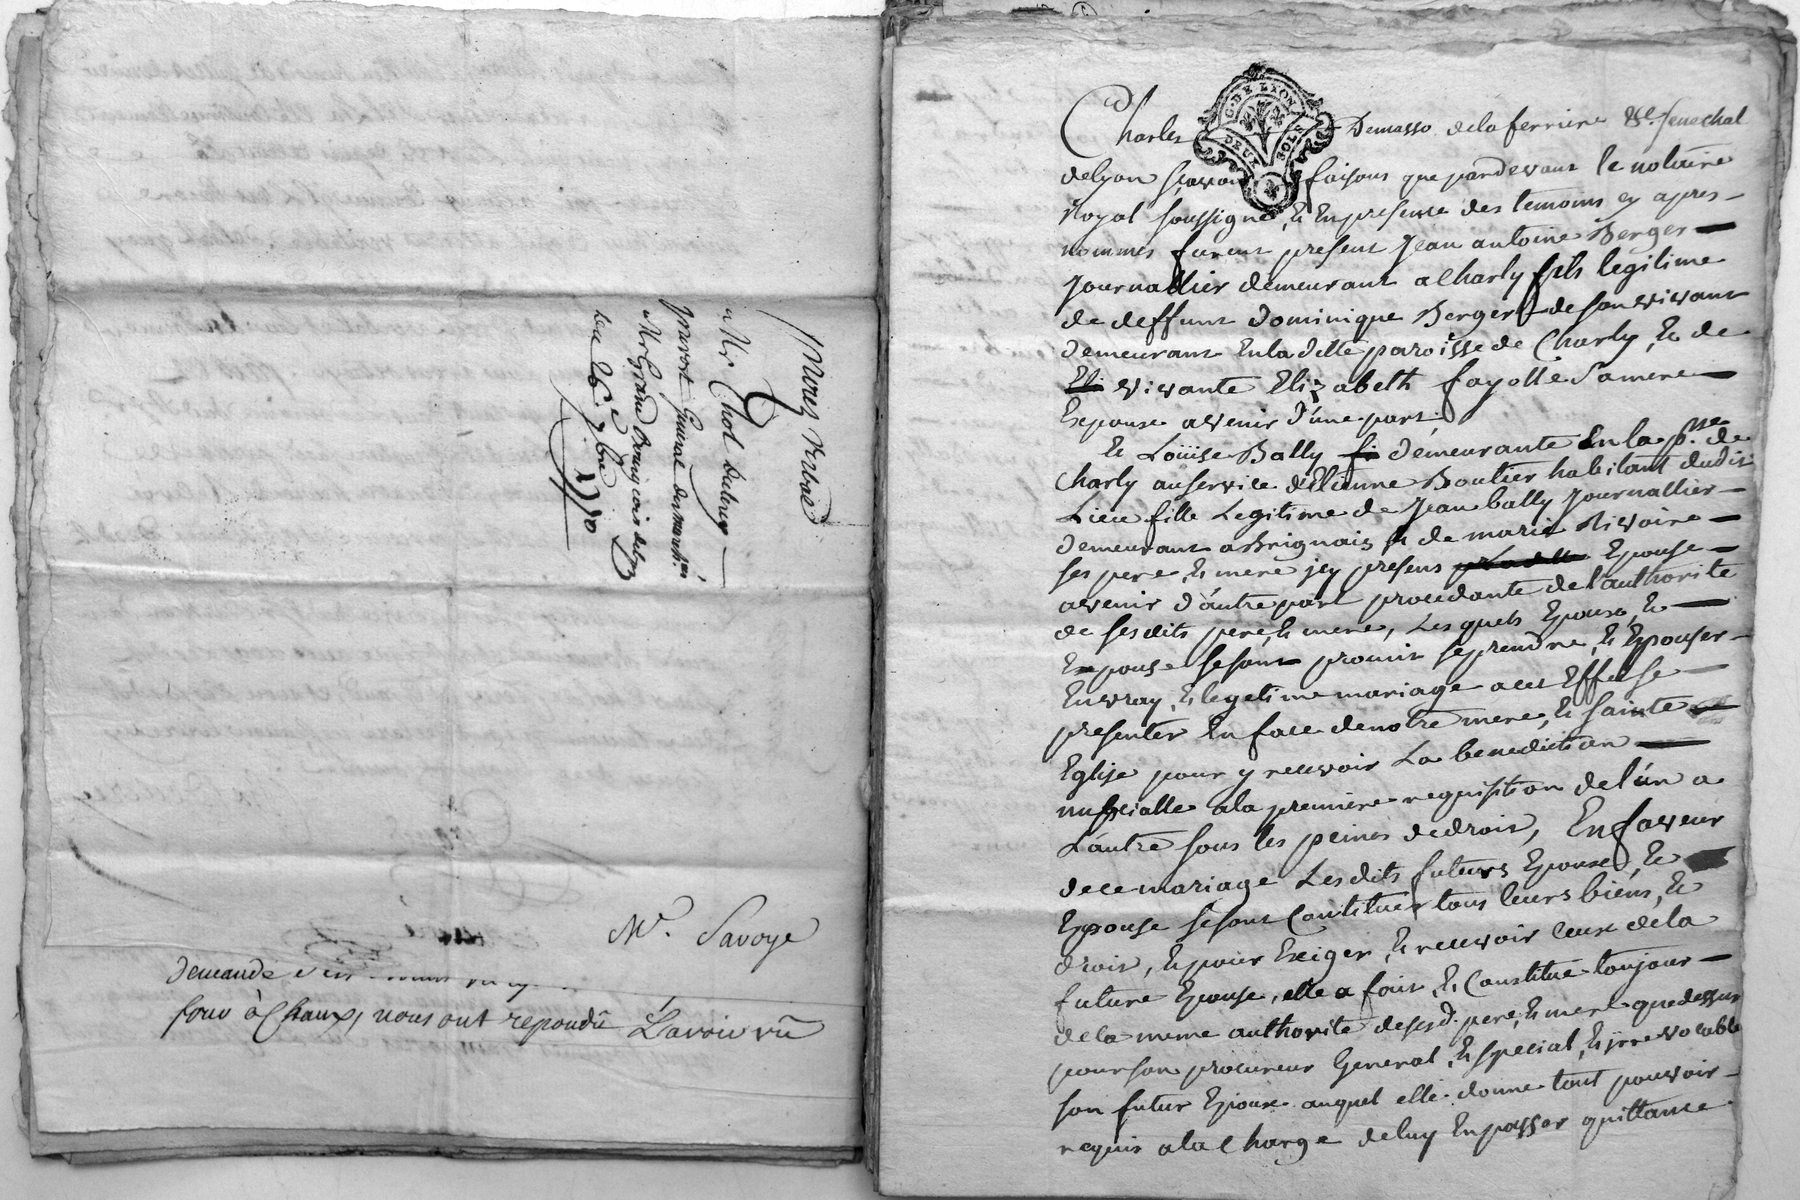 Mr. Chol
prevost General des
Mr Grand
1780
Mr. Savoye
Demande
four à Chaux, nous ont repondu L'avoir vü
G. DE LYON
DEUX SOLS
Charles Demasso delaferriere Senechal
delyon Sçavoir faisons que pardevant le notaire
royal soussigné, & Enpresence des temoins cy apres
nommés furent present Jean antoine Berger
Journallier demeurant a Charly fils legitime
de deffunt Dominique Berger de son vivant
demeurant Enladitte paroisse de Charly, & de
vivante Elizabeth fayolle Samere
Expoux avenir d'une part,
& Loüise Bally fi demeurante En la psse de
Charly auservice d'Etienne Boutier habitant dudit
Lieu fille Legitime de Jean bally Journallier
demeurant a Brignais & de marie Rivoire
ses pere, & mere jcy presens Epouse
avenir d'autre part procedante de l'authorité
de sesdits pere, & mere, Lesquels Epoux, &
Epouse sesont promis seprendre, & Epouser
Envray, & legetime mariage acet Effet se
presenter En face denotre mere, & sainte
Eglise pour y recevoir La benediction
nupcialle ala premiere requisition del'un a
L'autre sous les peines dedroit, En faveur
dece mariage Lesdits futurs Epoux, &
Epouse sesont Constitués tous leurs biens, &
droit, & pour Exiger, & recevoir ceux dela
future Epouse, elle a fait, & Constitue toujour
dela meme authorité desesd. pere, & mere quedessus
pourson procureur General, & special, & jrrevocable
son futur Epoux auquel elle donne tout pouvoir
requis ala Charge deluy Enpasser quittance